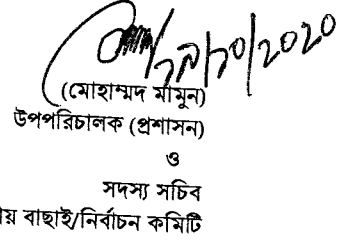 ২৯/১০/২০২০
(মোহাম্মদ মামুন)
উপপরিচালক (প্রশাসন)
ও
সদস্য সচিব
য় বাছাই/নির্বাচন কমিটি